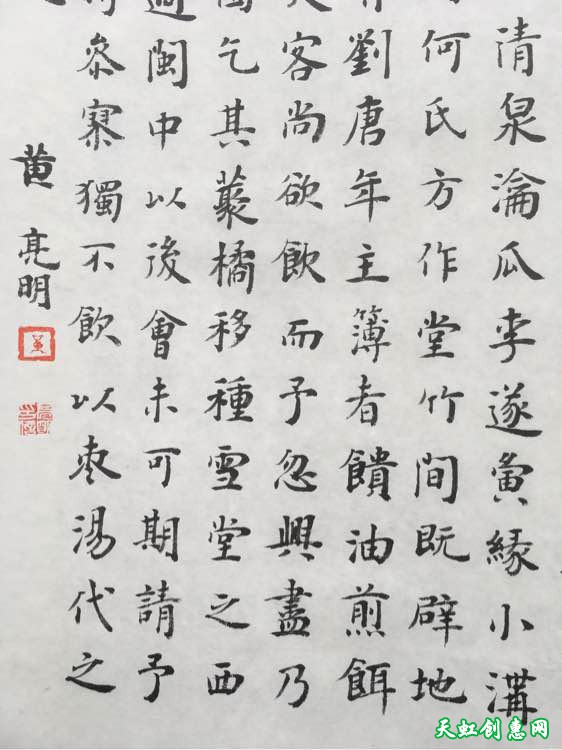 清泉瀹瓜李遂夤緣小溝
何氏方作堂竹間既辟地
劉唐年主簿者饋油煎餌
客尚欲飲而予忽興盡乃
乞其藂橘移種雪堂之西
適閩中以後會未可期請予
參寥獨不飲以棗湯代之
黄亮明
天虹创惠网